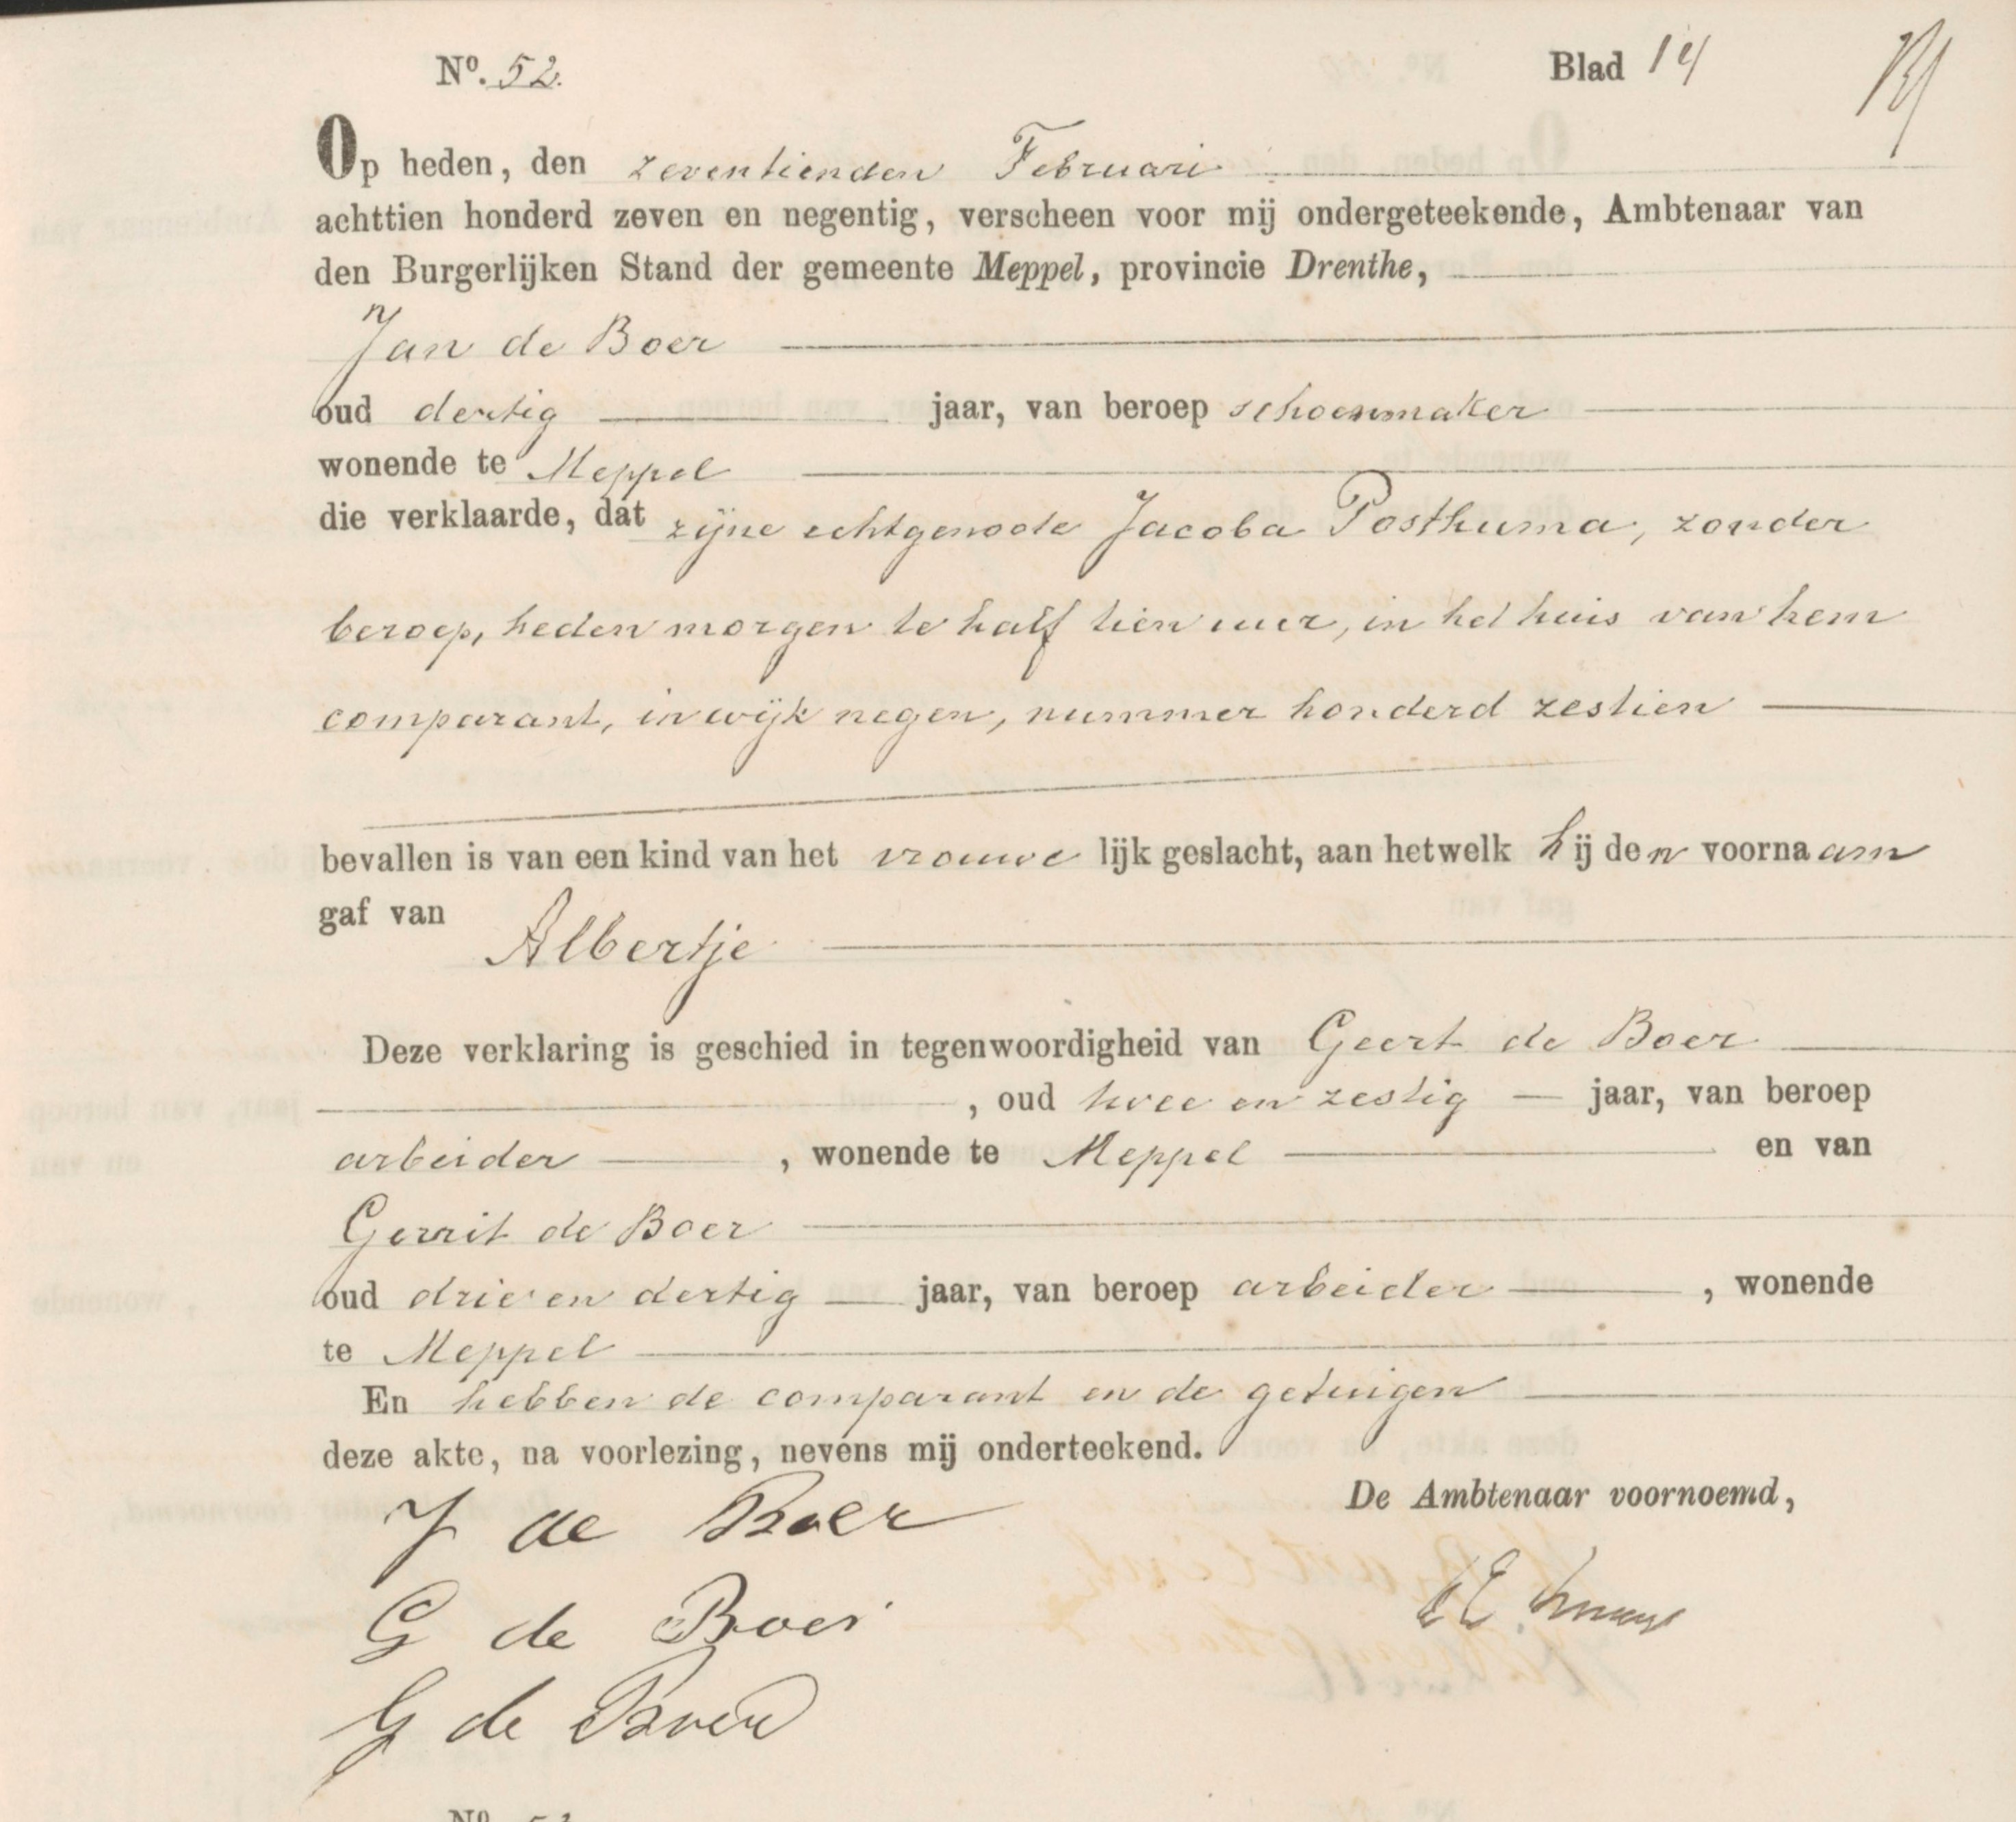 Nº. 52. Blad 14
Op heden, den zeventienden Februari
achttien honderd zeven en negentig, verscheen voor mij ondergeteekende, Ambtenaar van
den Burgerlijken Stand der gemeente Meppel, provincie Drenthe,
Jan de Boer
oud dertig jaar, van beroep schoenmaker
wonende te Meppel
die verklaarde, dat zijne echtgenoote Jacoba Posthuma, zonder
beroep, heden morgen te half tien uur, in het huis van hem
comparant, in wijk negen, nummer honderd zestien
bevallen is van een kind van het vrouwe lijk geslacht, aan hetwelk hij den voornaam
gaf van Albertje
Deze verklaring is geschied in tegenwoordigheid van Geert de Boer
, oud twee en zestig jaar, van beroep
arbeider , wonende te Meppel en van
Gerrit de Boer
oud drie en dertig jaar, van beroep arbeider , wonende
te Meppel
En hebben de comparant en de getuigen
deze akte, na voorlezing, nevens mij onderteekend.
De Ambtenaar voornoemd,
J de Boer
G de Boer
G de Boer